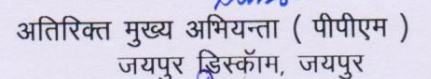 अतिरिक्त मुख्य अभियन्ता ( पीपीएम )
जयपुर डिस्कॉम, जयपुर